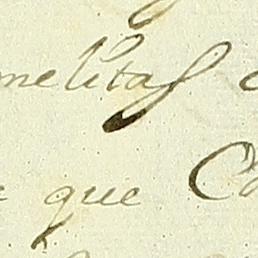 melitas
que Co